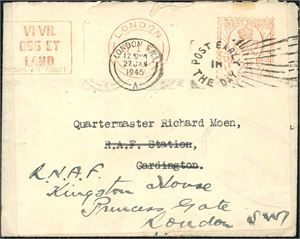 VI VIL
OSS ET
LAND
LONDON
LONDON
27 JAN
1945
A
POST EARLY
IN
THE DAY
Quartermaster Richard Moen,
R.A.F. Station,
Cardington.
R.N.A.F.
Kingston House
Princess Gate
London SW7